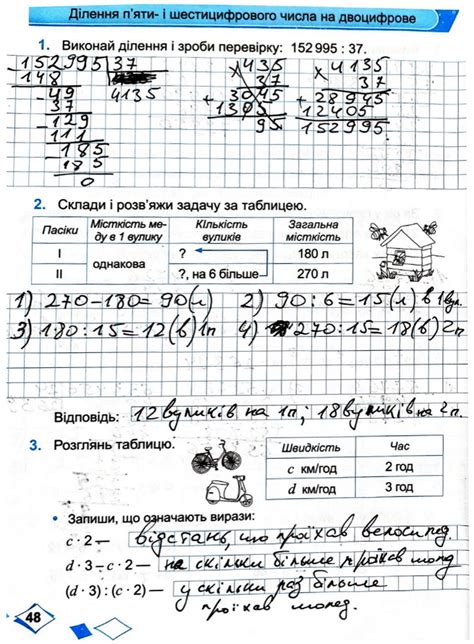 Ділення п'яти- і шестицифрового числа на двоцифрове
1. Виконай ділення і зроби перевірку: 152 995 : 37.
152995 37
148 4135
49
37
129
111
185
185
0
× 435
37
+ 3045
1305
95
× 4135
37
+ 28945
12405
152995
2. Склади і розв'яжи задачу за таблицею.
Пасіки Місткість ме-ду в 1 вулику Кількість вуликів Загальна місткість
І однакова ? 180 л
ІІ ?, на 6 більше 270 л
1) 270-180=90(л) 2) 90:6=15(л) в 1 вул.
3) 180:15=12(в) 1п 4) 270:15=18(в) 2п
Відповідь: 12 вуликів на 1п; 18 вуликів на 2п.
3. Розглянь таблицю.
Швидкість Час
c км/год 2 год
d км/год 3 год
• Запиши, що означають вирази:
c · 2 — відстань, що проїхав велосипед.
d · 3 – c · 2 — на скільки більше проїхав мопед
(d · 3) : (c · 2) — у скільки раз більше
проїхав мопед.
48